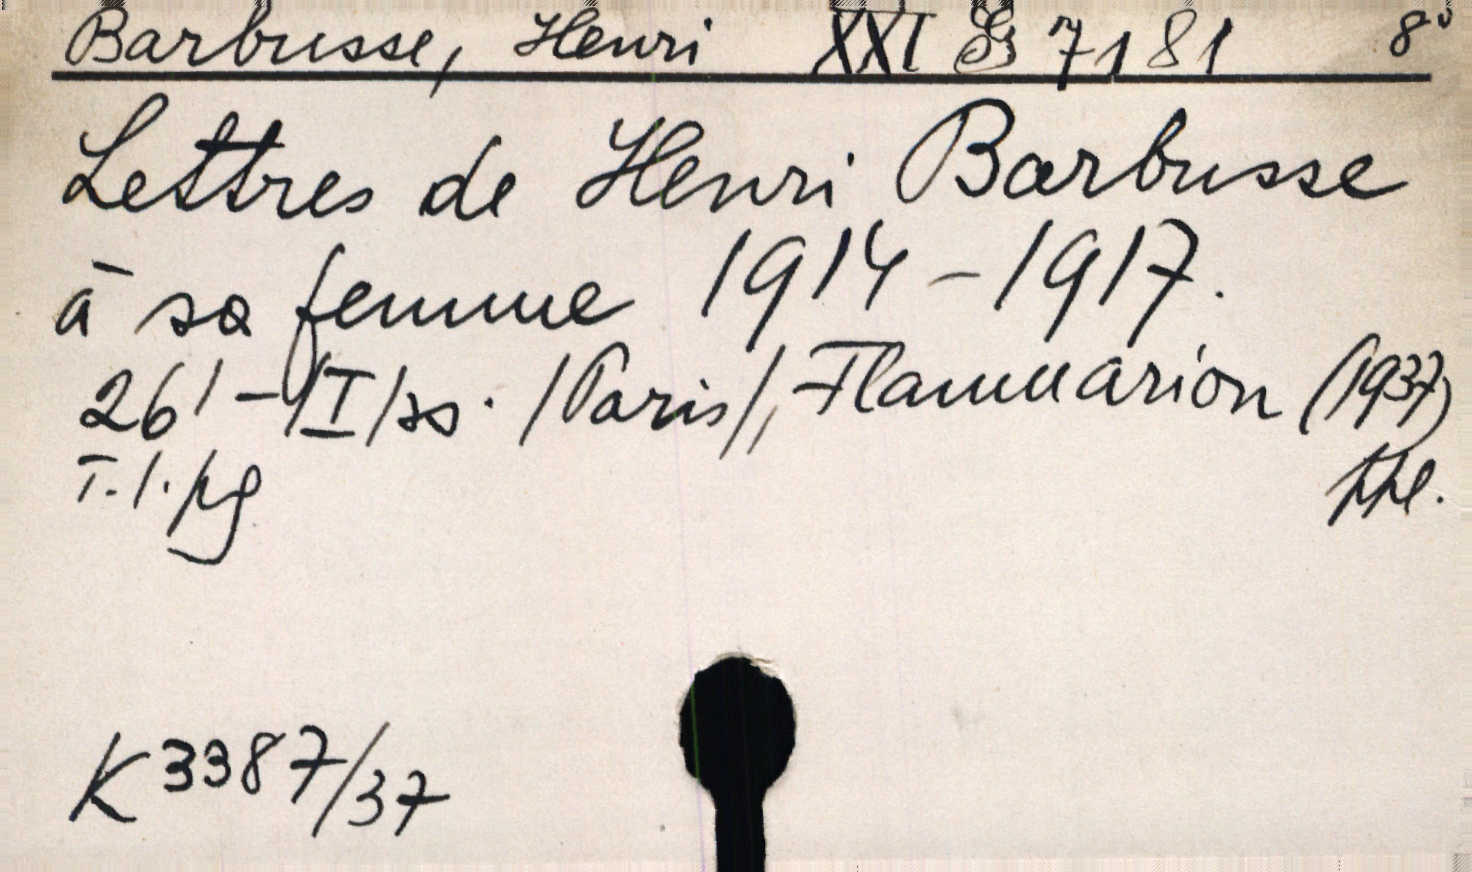 Barbusse, Henri XXI B 7181 8°
Lettres de Henri Barbusse
à sa femme 1914-1917.
261-/I/ss. /Paris/, Flammarion (1937)
T.l.pg ppl.
K 3387/37